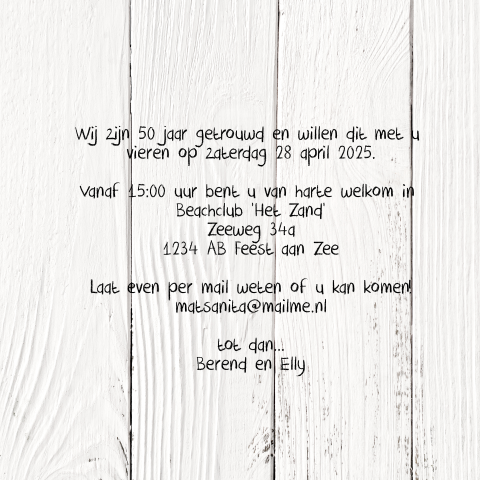 Wij zijn 50 jaar getrouwd en willen dit met u
vieren op zaterdag 28 april 2025.
Vanaf 15:00 uur bent u van harte welkom in
Beachclub 'Het Zand'
Zeeweg 34a
1234 AB Feest aan Zee
Laat even per mail weten of u kan komen!
matsanita@mailme.nl
tot dan...
Berend en Elly